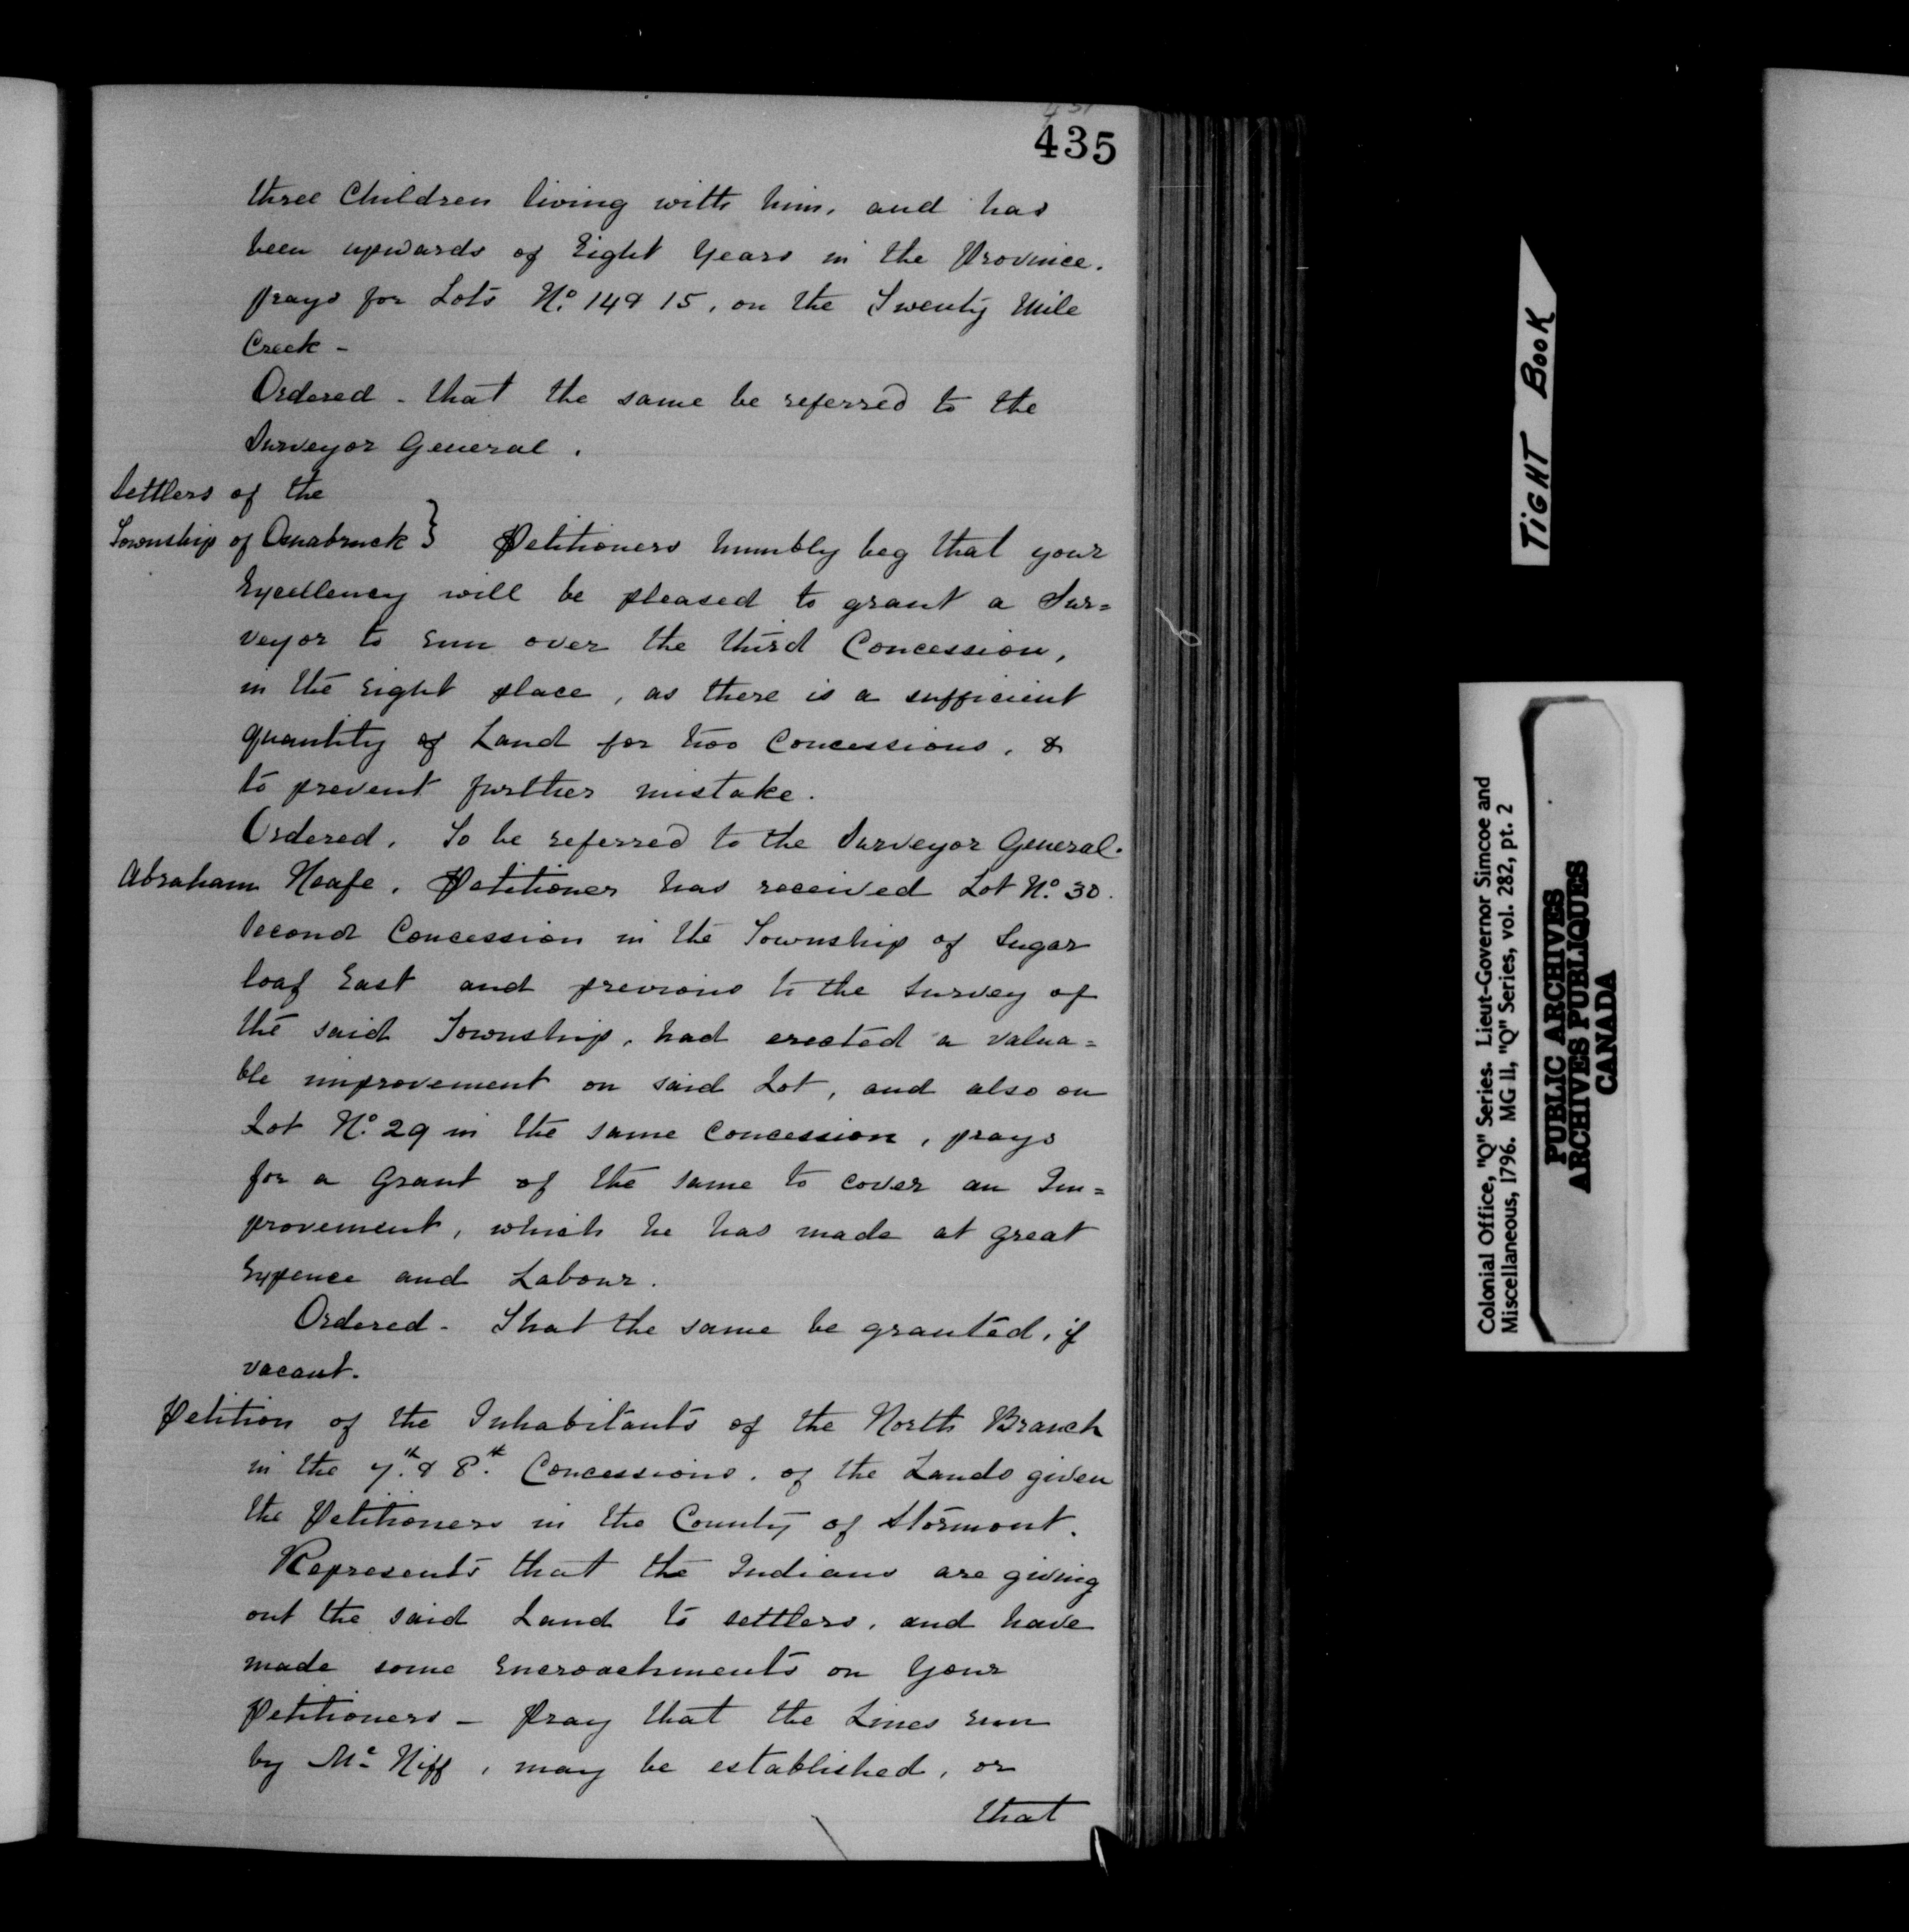 435
three Children living with him, and has
been upwards of Eight Years in the Province.
prays for Lots No. 14 & 15, on the Twenty Mile
Creek -
Ordered - that the same be referred to the
Surveyor General.
Settlers of the
Township of Osnabruck } Petitioners humbly beg that your
Excellency will be pleased to grant a Sur=
veyor to run over the third Concession,
in the right place, as there is a sufficient
quantity of Land for two Concessions, &
to prevent further mistake.
Ordered. To be referred to the Surveyor General.
Abraham Neafe. Petitioner has received Lot No. 30.
Second Concession in the Township of Sugar
loaf East and previous to the survey of
the said Township, had erected a valua=
ble improvement on said Lot, and also on
Lot No. 29 in the same concession, prays
for a Grant of the same to cover an Im=
provement, which he has made at great
Expence and Labour.
Ordered - That the same be granted, if
vacant.
Petition of the Inhabitants of the North Branch
in the 7.th & 8.th Concessions. of the Lands given
the Petitioners in the County of Stormont.
Represents that the Indians are giving
out the said Land to settlers, and have
made some encroachments on Your
Petitioners - Pray that the Lines run
by Mc Niff, may be established, or
that
TIGHT BOOK
Colonial Office, "Q" Series. Lieut-Governor Simcoe and
Miscellaneous, 1796. MG 11, "Q" Series, vol. 282, pt. 2
PUBLIC ARCHIVES
ARCHIVES PUBLIQUES
CANADA